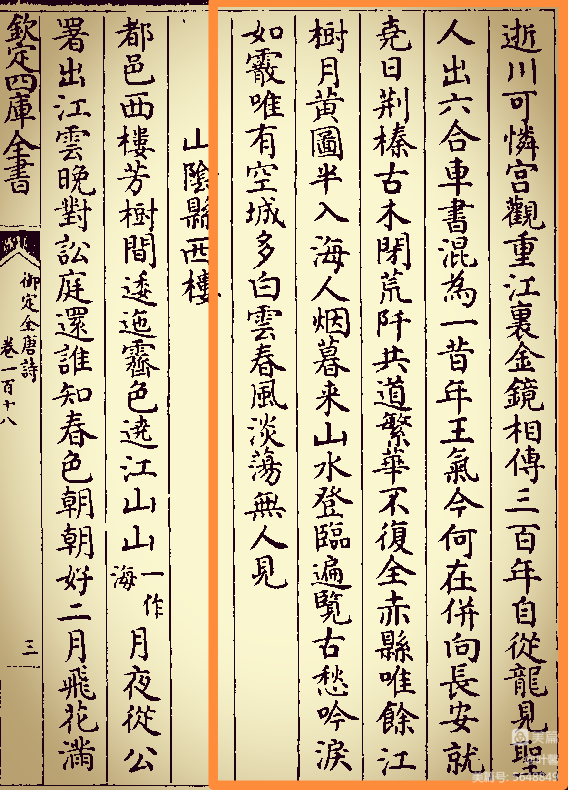 逝川可憐宮觀重江裏金鏡相傳三百年自從龍見聖
人出六合車書混為一昔年王氣今何在併向長安就
堯日荆榛古木閉荒阡共道繁華不復全赤縣唯餘江
樹月黄圖半入海人烟暮来山水登臨遍覽古愁吟淚
如霰唯有空城多白雲春風淡蕩無人見
山陰縣西樓
都邑西樓芳樹間逶迤霽色遶江山山
一作
海
月夜從公
署出江雲晚對訟庭還誰知春色朝朝好二月飛花滿
欽定四庫全書
御定全唐詩
卷一百十八
三
美篇
美篇号: 5648849